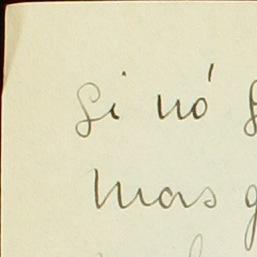 si nó
mas